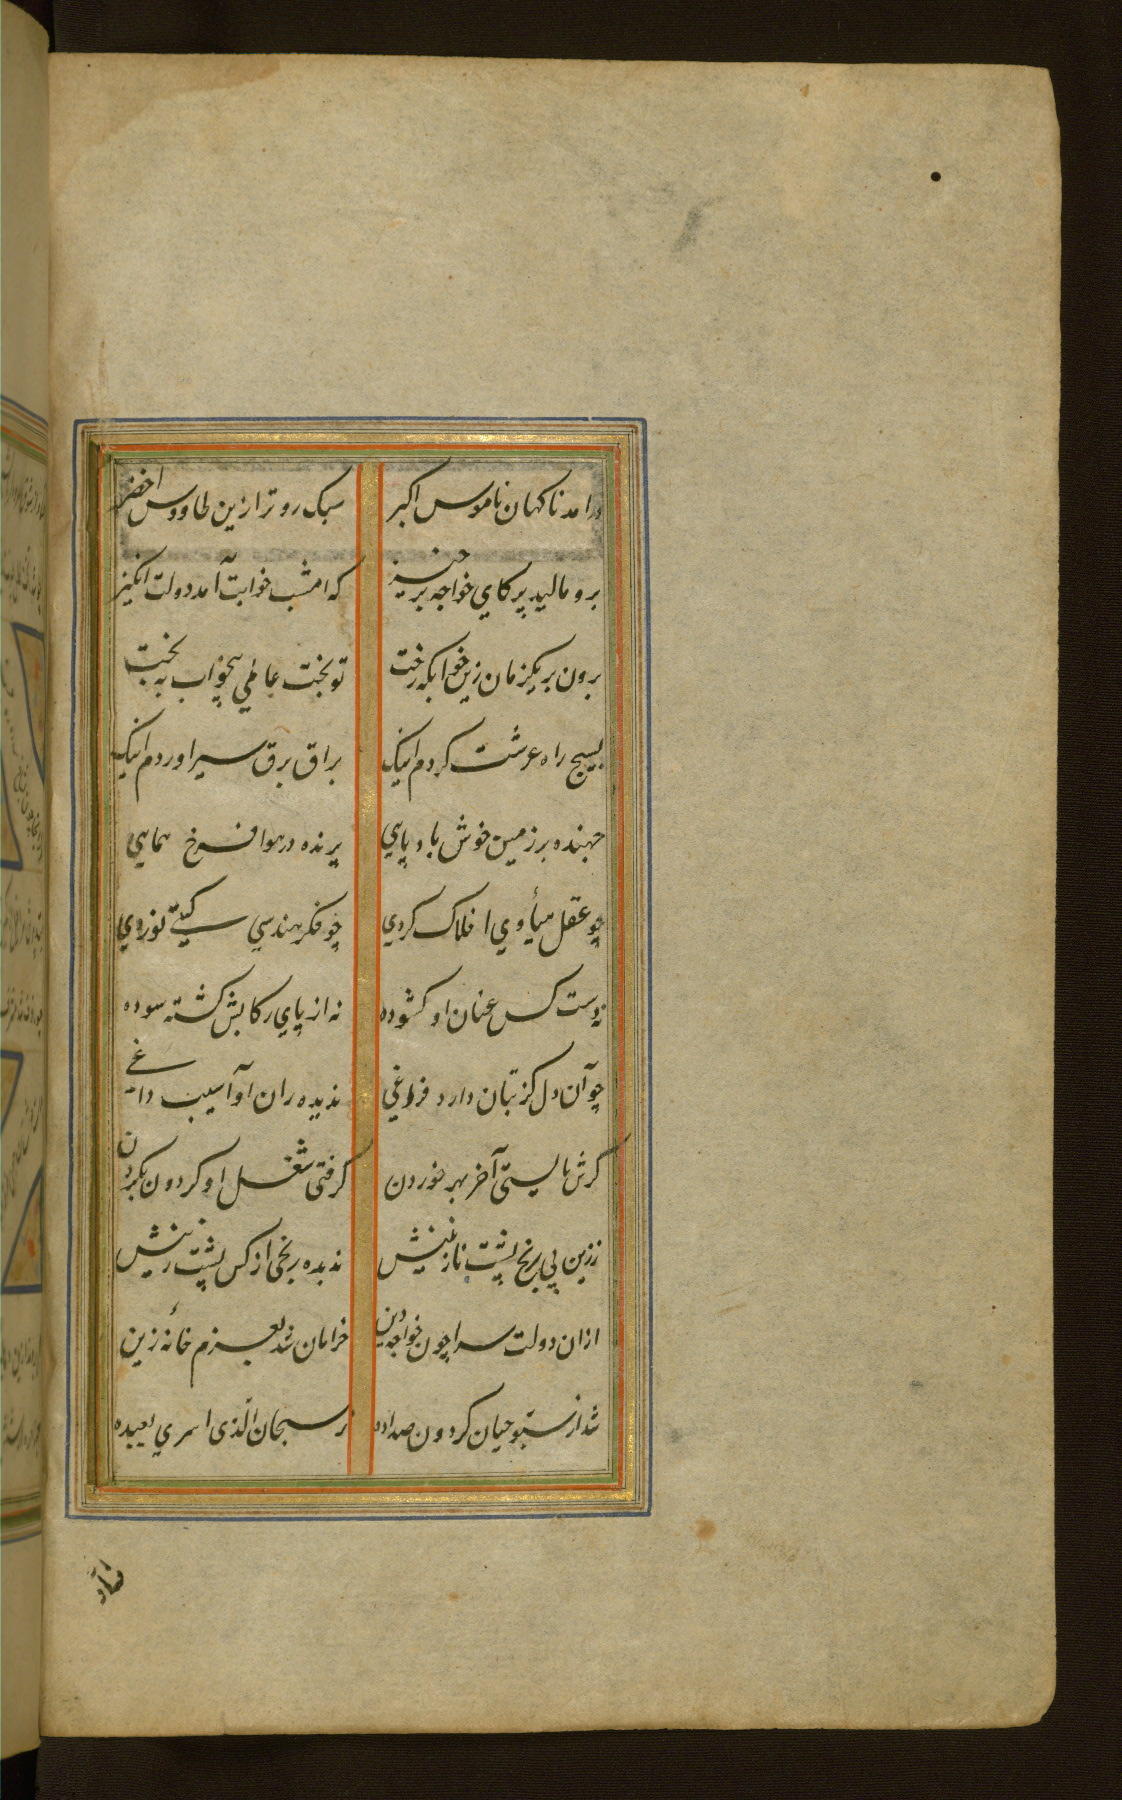 درامد ناکهان ناموس اکبر سبک رو تر ازین طاووس اخضر
برو مالید پر کای خواجه برخیز که امشب خوابت آمد دولت انکیز
برون بر یکزمان زین خوابکه رخت تو بخت عالمی بیخواب به بخت
بسیج راه عرشت کردم اینک براق برق سیر اوردم اینک
جهنده بر زمین خوش باد پایی پرنده در هوا فرخ همایی
چو عقل افلاک کردی چو فکر هندسی کیتی نوردی
نه دست کس عنان او کشوده نه از پای رکابش کشته سوده
چو آن دل کز بتان دارد فراغی ندیده ران او آسیب داغی
کرش بایستی آخر بهر خوردن کرفتی شغل او کردون بکردن
ززین بی رنج پشت نازنینش ندیده رنجی از کس پشت زینش
ازان دولت سرا چون خواجه دین خرامان شد بعزم خانه زین
شد از سبوحیان کردون صدا ده سبحان الذی اسری بعبده